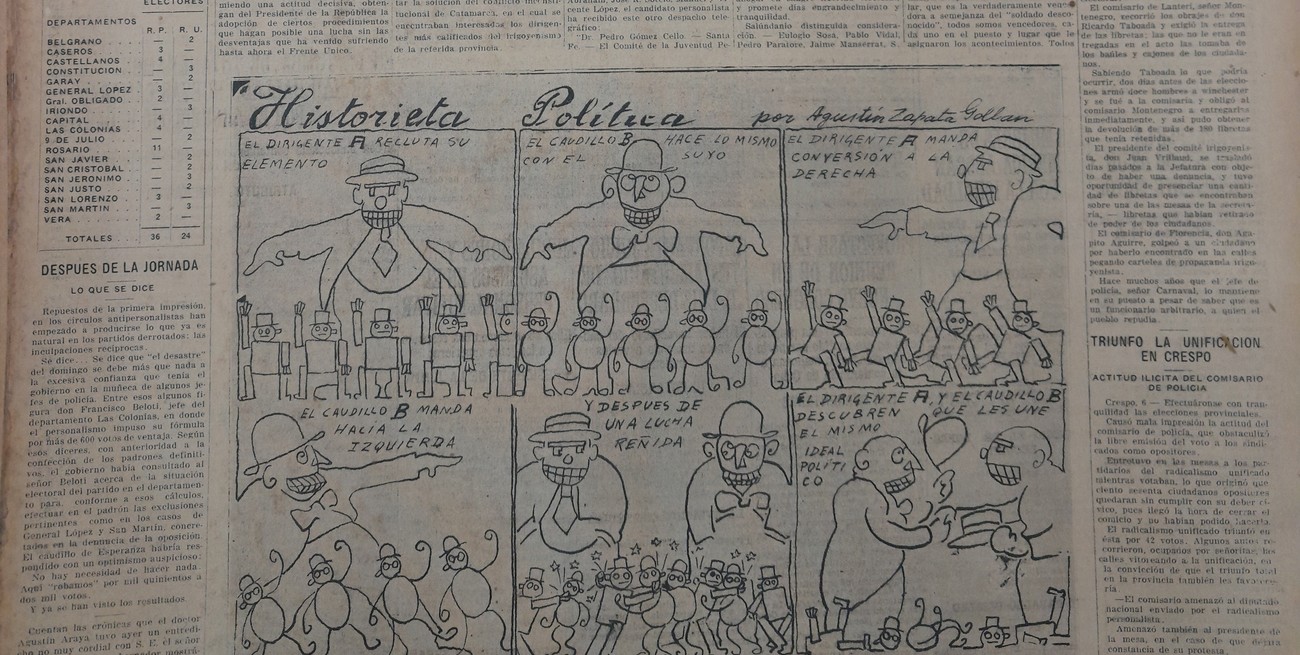 ELECTORES
DEPARTAMENTOS
R. P. R. U.
BELGRANO . — 2
CASEROS . . 3 —
CASTELLANOS . 4 —
CONSTITUCION . — 3
GARAY . . . — 2
GENERAL LOPEZ . 3 —
Gral. OBLIGADO . 2 —
IRIONDO . . — 3
CAPITAL . . 4 —
LAS COLONIAS . 4 —
9 DE JULIO . . — 2
ROSARIO . . 11 —
SAN JAVIER . . — 2
SAN CRISTOBAL . — 2
SAN JERONIMO . — 3
SAN JUSTO . . — 2
SAN LORENZO . 3 —
SAN MARTIN . . — 3
VERA . . . 2 —
TOTALES . . . 36 24
DESPUES DE LA JORNADA
LO QUE SE DICE
Repuestos de la primera impresión,
en los círculos antipersonalistas han
empezado a producirse lo que ya es
natural en los partidos derrotados: las
inculpaciones recíprocas.
Se dice... Se dice que "el desastre"
del domingo se debe más que nada a
la excesiva confianza que tenía el
gobierno en la muñeca de algunos je-
fes de policía. Entre esos algunos fi-
gura don Francisco Beloti, jefe del
departamento Las Colonias, en donde
el personalismo impuso su fórmula
por más de 600 votos de ventaja. Según
esos díceres, con anterioridad a la
confección de los padrones definiti-
vos, el gobierno había consultado al
señor Beloti acerca de la situación
electoral del partido en el departamen-
to para, conforme a esos cálculos,
efectuar en el padrón las exclusiones
pertinentes como en los casos de
General López y San Martín, concre-
tados en la denuncia de la oposición
El caudillo de Esperanza habría res-
pondido con un optimismo auspicioso:
No hay necesidad de hacer nada.
Aquí "robamos" por mil quinientos a
dos mil votos.
Y ya se han visto los resultados.
Cuentan las crónicas que el doctor
Agustín Araya tuvo ayer un entredi-
cho no muy cordial con S. E. el señor
miendo una actitud decisiva, obten-
gan del Presidente de la República la
adopción de ciertos procedimientos
que hagan posible una lucha sin las
desventajas que ha venido sufriendo
hasta ahora el Frente Unico.
tar la solución del conflicto insti-
tucional de Catamarca, en el cual se
encontraban interesados los dirigen-
tes más calificados del irigoyenismo
de la referida provincia.
cente López, el candidato personalista
ha recibido este otro despacho tele-
gráfico:
"Dr. Pedro Gómez Cello. — Santa
Fe. — El Comité de la Juventud Pe-
y promete días engrandecimiento y
tranquilidad.
Salúdanlo distinguida considera-
ción. — Eulogio Sosa, Pablo Vidal,
Pedro Paratore, Jaime Manserrat, S.
lar, que es la verdaderamente vence-
dora a semejanza del "soldado desco-
nocido", todos somos vencedores, ca-
da uno en el puesto y lugar que le
asignaron los acontecimientos. Todos
Historieta Política por Agustín Zapata Gollan
EL DIRIGENTE A RECLUTA SU
ELEMENTO
EL CAUDILLO B HACE LO MISMO
CON EL SUYO
EL DIRIGENTE A MANDA
CONVERSIÓN A LA
DERECHA
EL CAUDILLO B MANDA
HACIA LA
IZQUIERDA
Y DESPUES DE
UNA LUCHA
REÑIDA
EL DIRIGENTE A, Y EL CAUDILLO B
DESCUBREN QUE LES UNE
EL MISMO
IDEAL
POLÍTI
CO
El comisario de Lanteri, señor Mon-
tenegro, recorrió los obrajes de don
Ricardo Taboada y exigió la entrega
de las libretas; las que no le eran en
tregadas en el acto las tomaba de
los baúles y cajones de los ciudada-
nos.
Sabiendo Taboada lo que podría
ocurrir, dos días antes de las eleccio-
nes armó doce hombres a winchester
y se fué a la comisaría y obligó al
comisario Montenegro a entregarlas
inmediatamente, y así pudo obtener
la devolución de más de 180 libretas
que tenía retenidas.
El presidente del comité irigoyenis-
ta, don Juan Vrillaud, se trasladó
días pasados a la Jefatura con obje-
to de haber una denuncia, y tuvo
oportunidad de presenciar una canti-
dad de libretas que se encontraban
sobre una de las mesas de la secreta-
ría, — libretas que habían retirado
de poder de los ciudadanos.
El comisario de Florencia, don Aga-
pito Aguirre, golpeó a un ciudadano
por haberlo encontrado en las calles
pegando carteles de propaganda irigo-
yenista.
Hace muchos años que el jefe de
policía, señor Carnaval, lo mantiene
en su puesto a pesar de saber que es
un funcionario arbitrario, a quien el
pueblo repudia.
TRIUNFO LA UNIFICACION
EN CRESPO
ACTITUD ILICITA DEL COMISARIO
DE POLICIA
Crespo, 6. — Efectuáronse con tran-
quilidad las elecciones provinciales.
Causó mala impresión la actitud del
comisario de policía, que obstaculizó
la libre emisión del voto a los sindi-
cados como opositores.
Entretuvo en las mesas a los par-
tidarios del radicalismo unificado
mientras votaban, lo que originó que
ciento sesenta ciudadanos opositores
quedaran sin cumplir con su deber cí-
vico, pues llegó la hora de cerrar el
comicio y no habían podido hacerlo.
El radicalismo unificado triunfó en
ésta por 42 votos. Algunos autos re-
corrieron, ocupados por señoritas, las
calles vitoreando a la unificación, en
la convicción de que el triunfo total
en la provincia también les favore-
ría.
—El comisario amenazó al diputado
nacional enviado por el radicalismo
personalista.
Amenazó también al presidente de
la mesa, en el caso de que
constancia de su protesta.